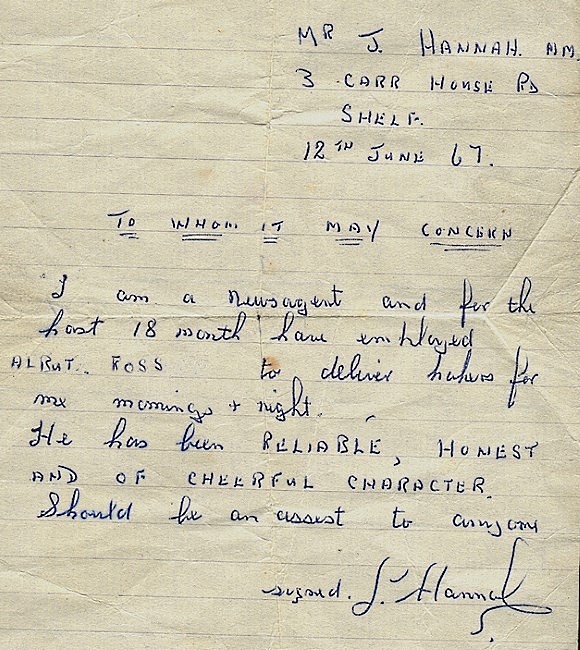 MR J. HANNAH. MM.
3 CARR HOUSE RD
SHELF.
12TH JUNE 67.
TO WHOM IT MAY CONCERN
I am a newsagent and for the
past 18 month have employed
ALBUT.. ROSS to deliver papers for
me mornings + night.
He has been RELIABLE, HONEST
AND OF CHEERFUL CHARACTER.
Should be an assest to anyone
signed. J. Hannah